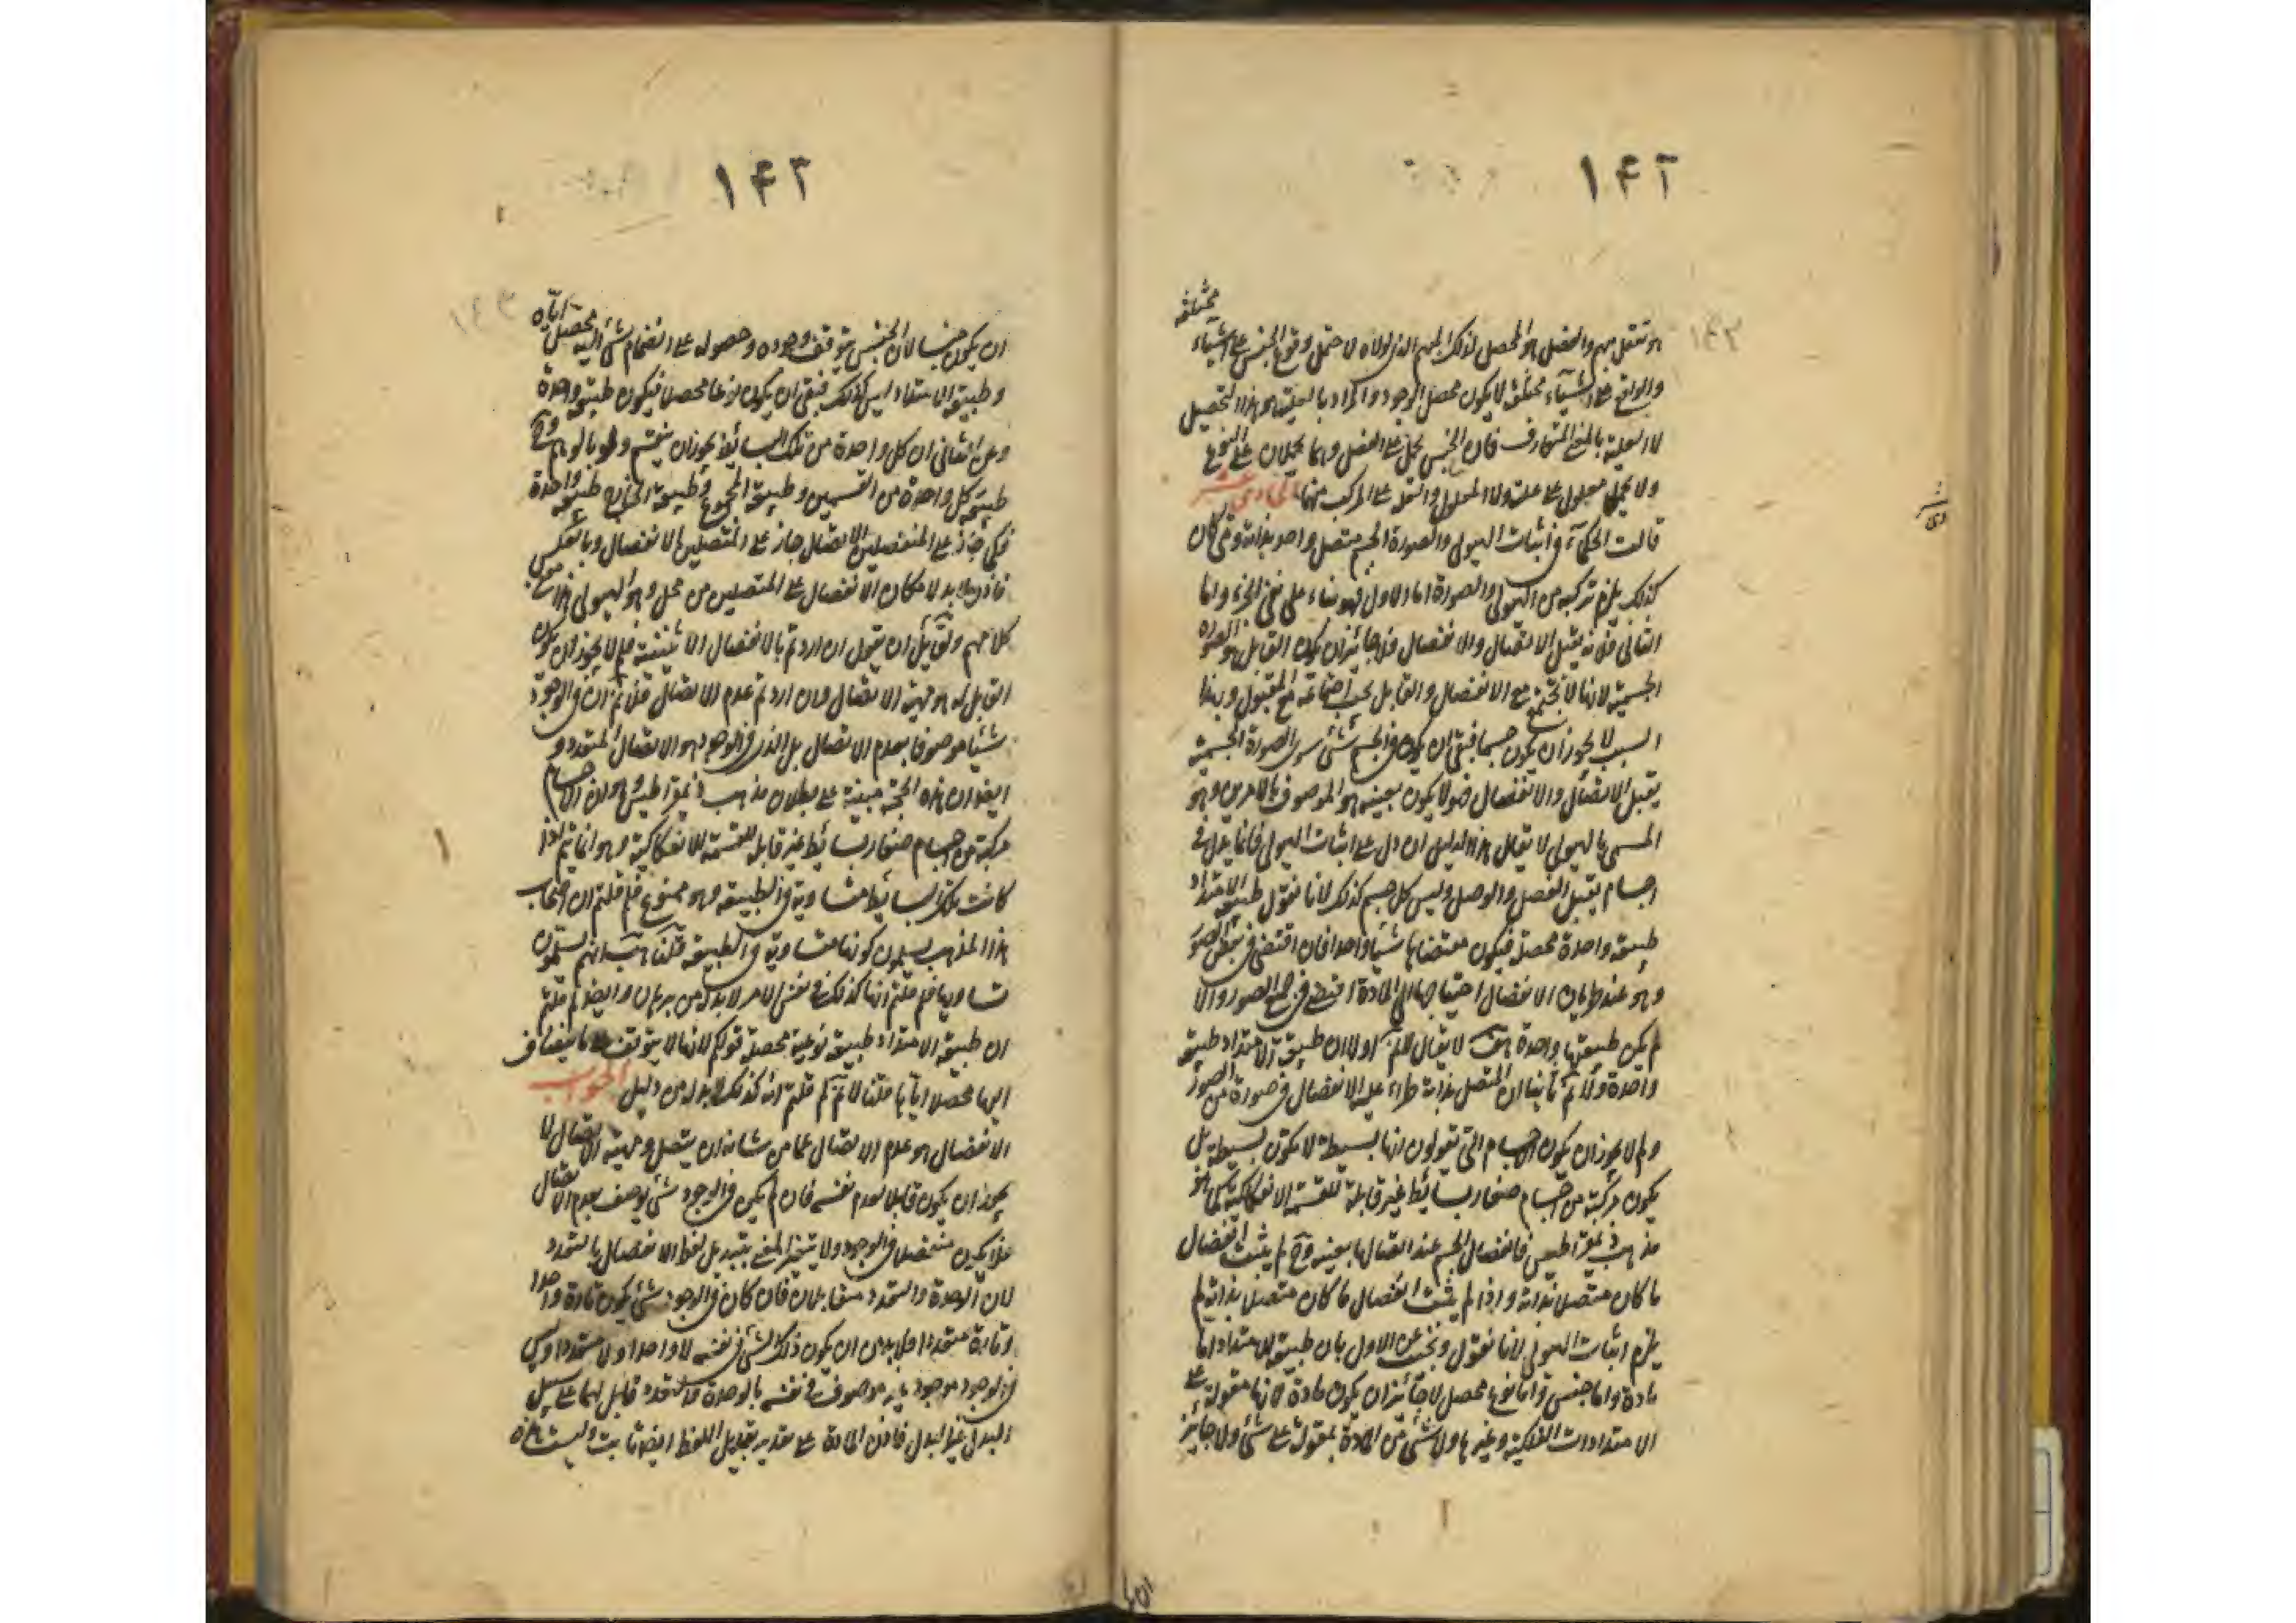 ١٤٢
مختلفة
هو تتعقل مبهم والفصل هو المحصل لذلك المبهم الذى لولاه لا حتمل وقوع الجنس على اشياء
والواقع على اشياء مختلفة لا يكون محصل الوجود والمراد بالعلية هو هذا التحصيل
لا العلية بالمعنى المتعارف فان الجنس يحمل على الفصل وهما يحملان على النوع
ولا يحمل معلول على علته ولا المعلول والعلة على المركب منهما الحادى عشر
قالت الحكماء فى اثبات الهيولى والصورة الجسم متصل واحد بذاته ومتى كان
كذلك يلزم تركبه من الهيولى والصورة اما الاول فهو بناء على نفى الجزء واما
الثانى فلانه يقبل الاتصال والانفصال فلا جائز ان يكون القابل هو الصورة
الجسمية لانها لا تجتمع مع الانفصال والقابل يجب اجتماعه مع المقبول وبهذا
السبب لا يجوز ان يكون جسما فبقى ان يكون فى الجسم شئ سوى الصورة الجسمية
يقبل الاتصال والانفصال فهو لا يكون بعينه هو الموصوف بالامرين وهو
المسمى بالهيولى لا يقال هذا الدليل ان دل على اثبات الهيولى فانما يدل فى
اجسام يقبل الفصل والوصل وليس كل جسم كذلك لانا نقول طبيعة الامتداد
طبيعة واحدة محصلة فيكون مقتضاها شيئا واحدا فان اقتضى فى بعض الصور
وهو عند طريان الانفصال احتياجها الى المادة اقتضى فى جميع الصور والا
لم يكن طبيعتها واحدة هف لا يقال لانم اولا ان طبيعة الامتداد طبيعة
واحدة ولانم ثانيا ان المتصل بذاته طرأ عليه الانفصال فى صورة من الصور
ولم لا يجوز ان يكون الاجسام التى تقولون انها بسيطة لا يكون بسيطة بل
يكون مركبة من اجسام صغار بسائط غير قابلة للقسمة الانفكاكية كما هو
مذهب ذيمقراطيس فانفصال الجسم عند اتصالها بعينه وح لم يثبت انفصال
ما كان متصلا بذاته واذا لم يثبت انفصال ما كان متصلا بذاته لم
يلزم اثبات الهيولى لانا نقول ونجيب عن الاول بان طبيعة الامتداد اما
مادة واما جنس واما نوع محصل لا جائز ان يكون مادة لانها مقولة على
الامتدادات الفلكية وغيرها ولا شئ من المادة بمقولة على شئ ولا جائز
١٤٣
ان يكون جنسا لان الجنس يتوقف وجوده وحصوله على انضمام شئ اليه محصل اياه
وطبيعة الامتداد ليس كذلك فبقى ان يكون نوعا محصلا فيكون طبيعة واحدة
وعن الثانى ان كل واحدة من تلك البسائط يجوز ان ينقسم ولو بالوهم وح
طبيعة كل واحدة من القسمين وطبيعة المجموع وطبيعة الخارج طبيعة واحدة
فكما جاز على المنفصلين الاتصال جاز على المتصلين الانفصال وبالعكس
فاذن لا بد لامكان الانفصال على المتصلين من محل وهو الهيولى هذا
كلامهم ولقائل ان يقول ان اردتم بالانفصال الاثنينية فلم لا يجوز ان يكون
القابل له هو مهية الاتصال وان اردتم عدم الاتصال فلانم ان فى الوجود
شيئا موصوفا بعدم الاتصال بل الذى فى الوجود هو الاتصال المتعدد و
ايضا ان هذه الحجة مبنية على بطلان مذهب ذيمقراطيس وهو ان الاجسام
مركبة من اجسام صغار بسائط غير قابلة للقسمة الانفكاكية وهو انما يتم اذا
كانت تلك البسائط متساوية فى الطبيعة وهو ممنوع فلم قلتم ان اصحاب
هذا المذهب يسلمون كونها متساوية فى الطبيعة قلنا هب انهم يسلمون
تساويها فلم قلتم انها كذلك فى نفس الامر لا بد له من برهان وايضا لم قلتم
ان طبيعة الامتداد طبيعة نوعية محصلة قولكم لانها لا يتوقف على ما ينضاف
اليها محصلا اياها قلنا لانم لم قلتم انه كذلك لا بد له من دليل الجواب
الانفصال هو عدم الاتصال عما من شانه ان يتصل ومهية الاتصال لا
يجوز ان يكون قابلا لعدم نفسه فان لم يكن فى الوجود شئ يوصف بعدم الاتصال
فلا يكون منفصلا فى الوجود ولا يتغير المعنى بتبديل لفظ الانفصال بالتعدد
لان الوحدة والتعدد متقابلان فان كان فى الوجود شئ يكون تارة واحدا
وتارة متعددا فلا بد من ان يكون ذلك الشئ فى نفسه لا واحدا ولا متعددا وليس
فى الوجود موجود بانه موصوف فى نفسه بالوحدة والتعدد قابل لهما على سبيل
البدل غير البدل فاذن المادة على تقدير تبديل اللفظ ايضا ثابت وليست هذه